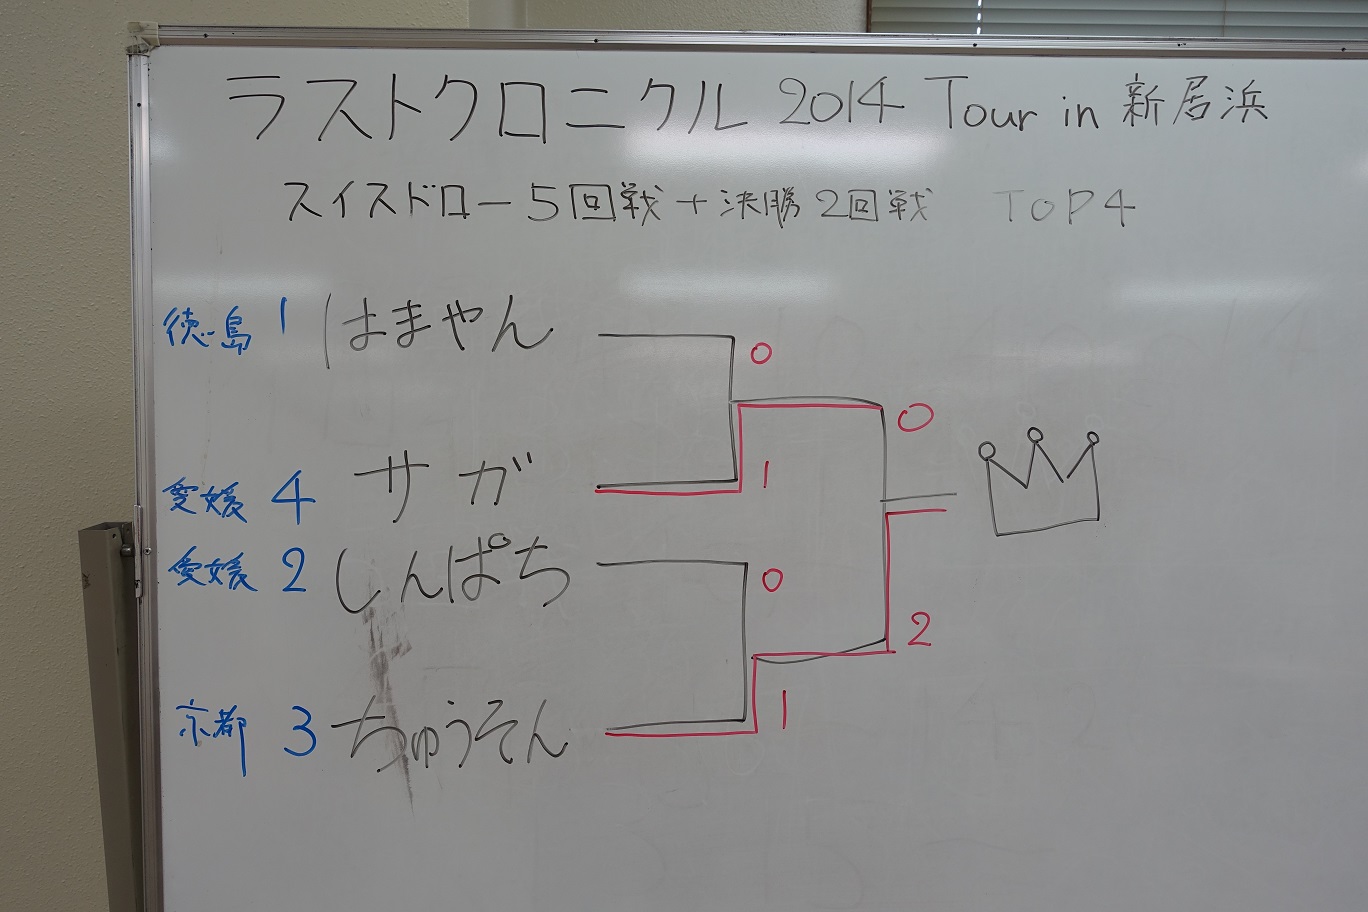 ラストクロニクル 2014 Tour in 新居浜
スイスドロー5回戦+決勝2回戦 TOP4
徳島 1 はまやん
0
0
愛媛 4 サガ
1
愛媛 2 しんぱち
0
2
京都 3 ちゅうそん
1